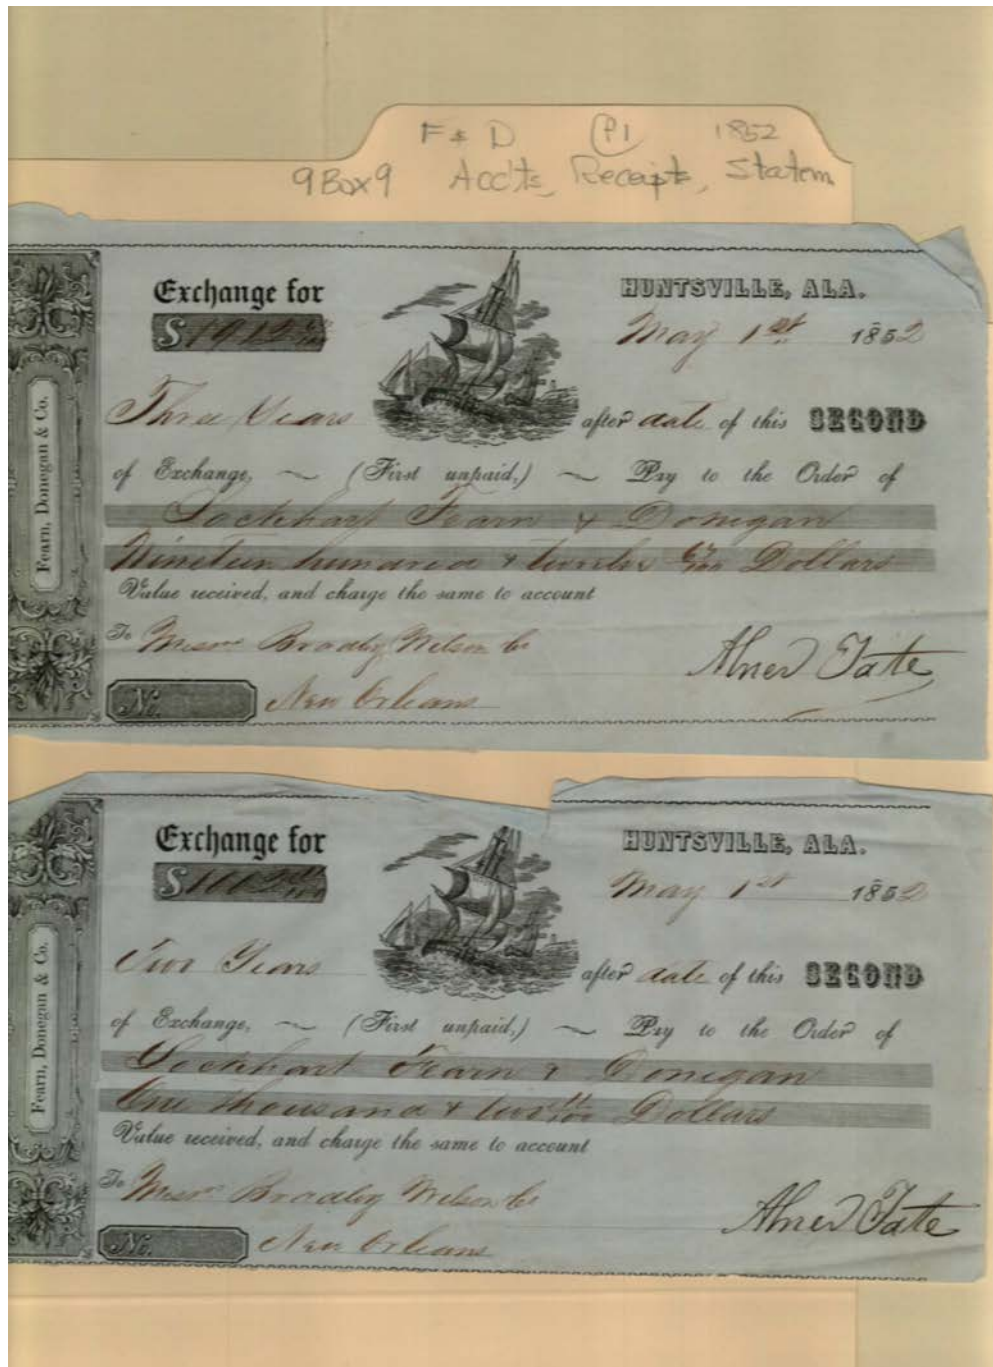 F & D P1 1852
9 Box 9 Acc'ts, Receipts, Statem
Fearn, Donegan & Co.
Exchange for
HUNTSVILLE, ALA.
$ 1912 67/100
May 1st 1852
Three Years after date of this SECOND
of Exchange, (First unpaid,) Pay to the Order of
Lockhart Fearn & Donegan
Nineteen hundred & twelve 67/100 Dollars
Value received, and charge the same to account
To Messrs Bradley Wilson Co
Abner Tate
No. New Orleans
Fearn, Donegan & Co.
Exchange for
HUNTSVILLE, ALA.
$1002
May 1st 1852
Two Years after date of this SECOND
of Exchange, (First unpaid,) Pay to the Order of
Lockhart Fearn & Donegan
One thousand & two Dollars
Value received, and charge the same to account
To Messrs Bradley Wilson Co
Abner Tate
No. New Orleans